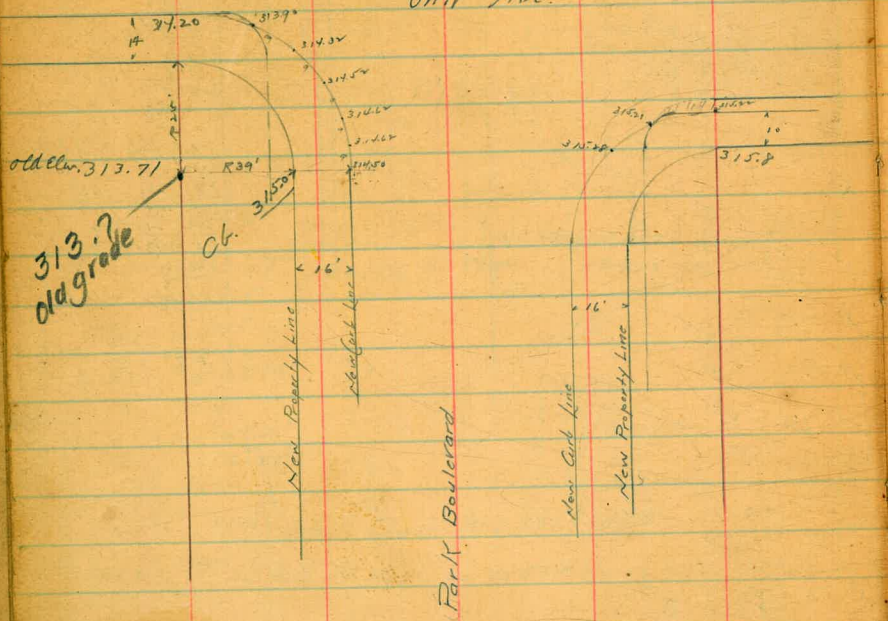 314.20
14
313.90
314.32
314.52
314.62
314.62
314.50
R 25'
Old Elev. 313.71
R 39'
315.02
Cb.
313.?
old grade
16'
New Property Line
New Curb Line
Park Boulevard
315.21
315.28
315.22
10
315.8
16'
New Curb Line
New Property Line